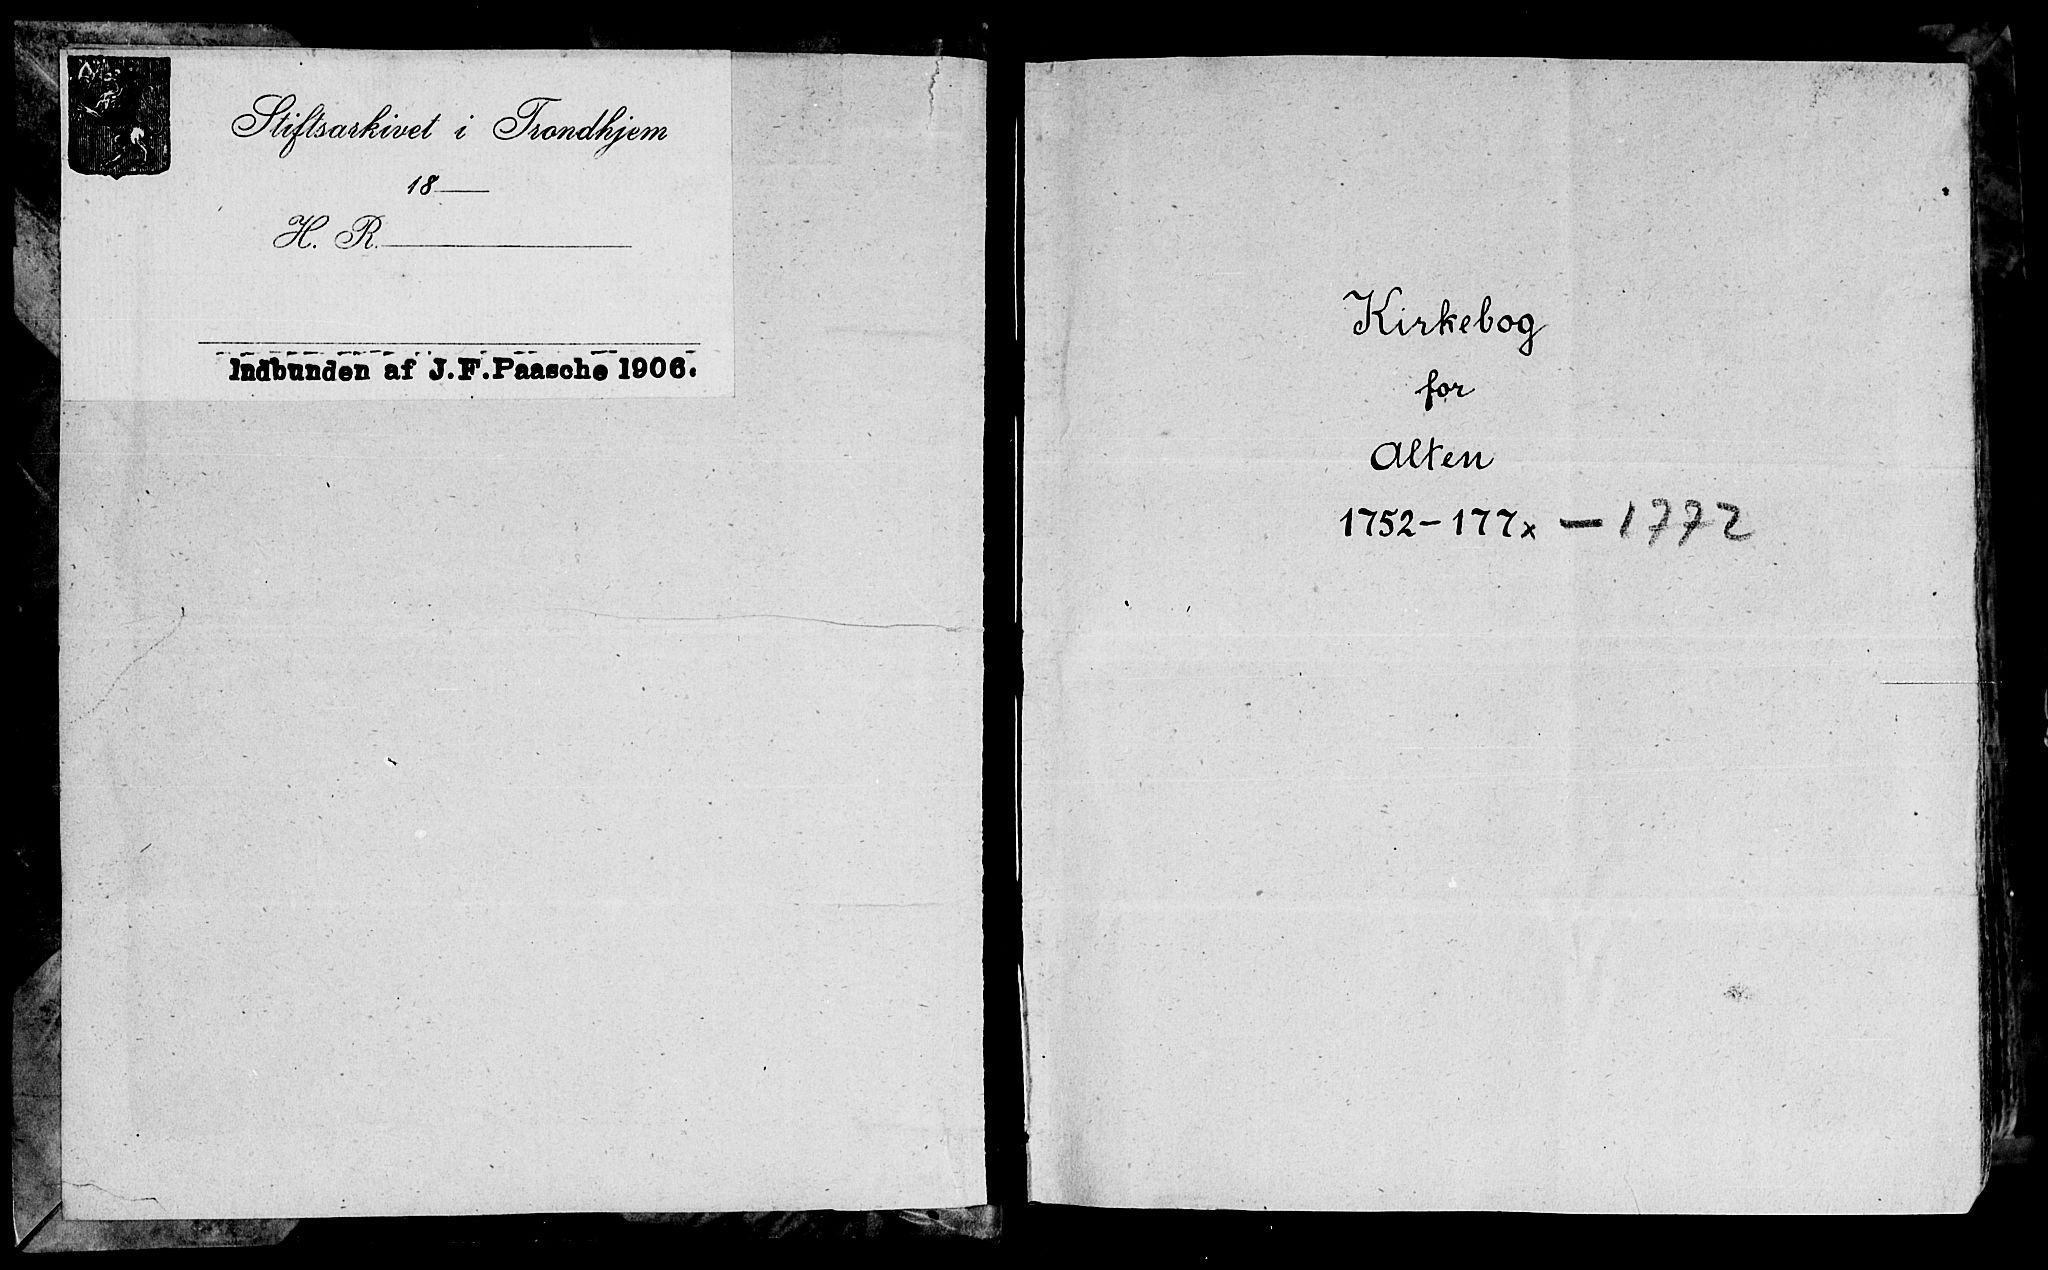 Stiftsarkivet i Trondhjem
18
H. R.
Indbunden af J.F. Paasche 1906.
Kirkebog
for
Alten
1752-177x - 1772